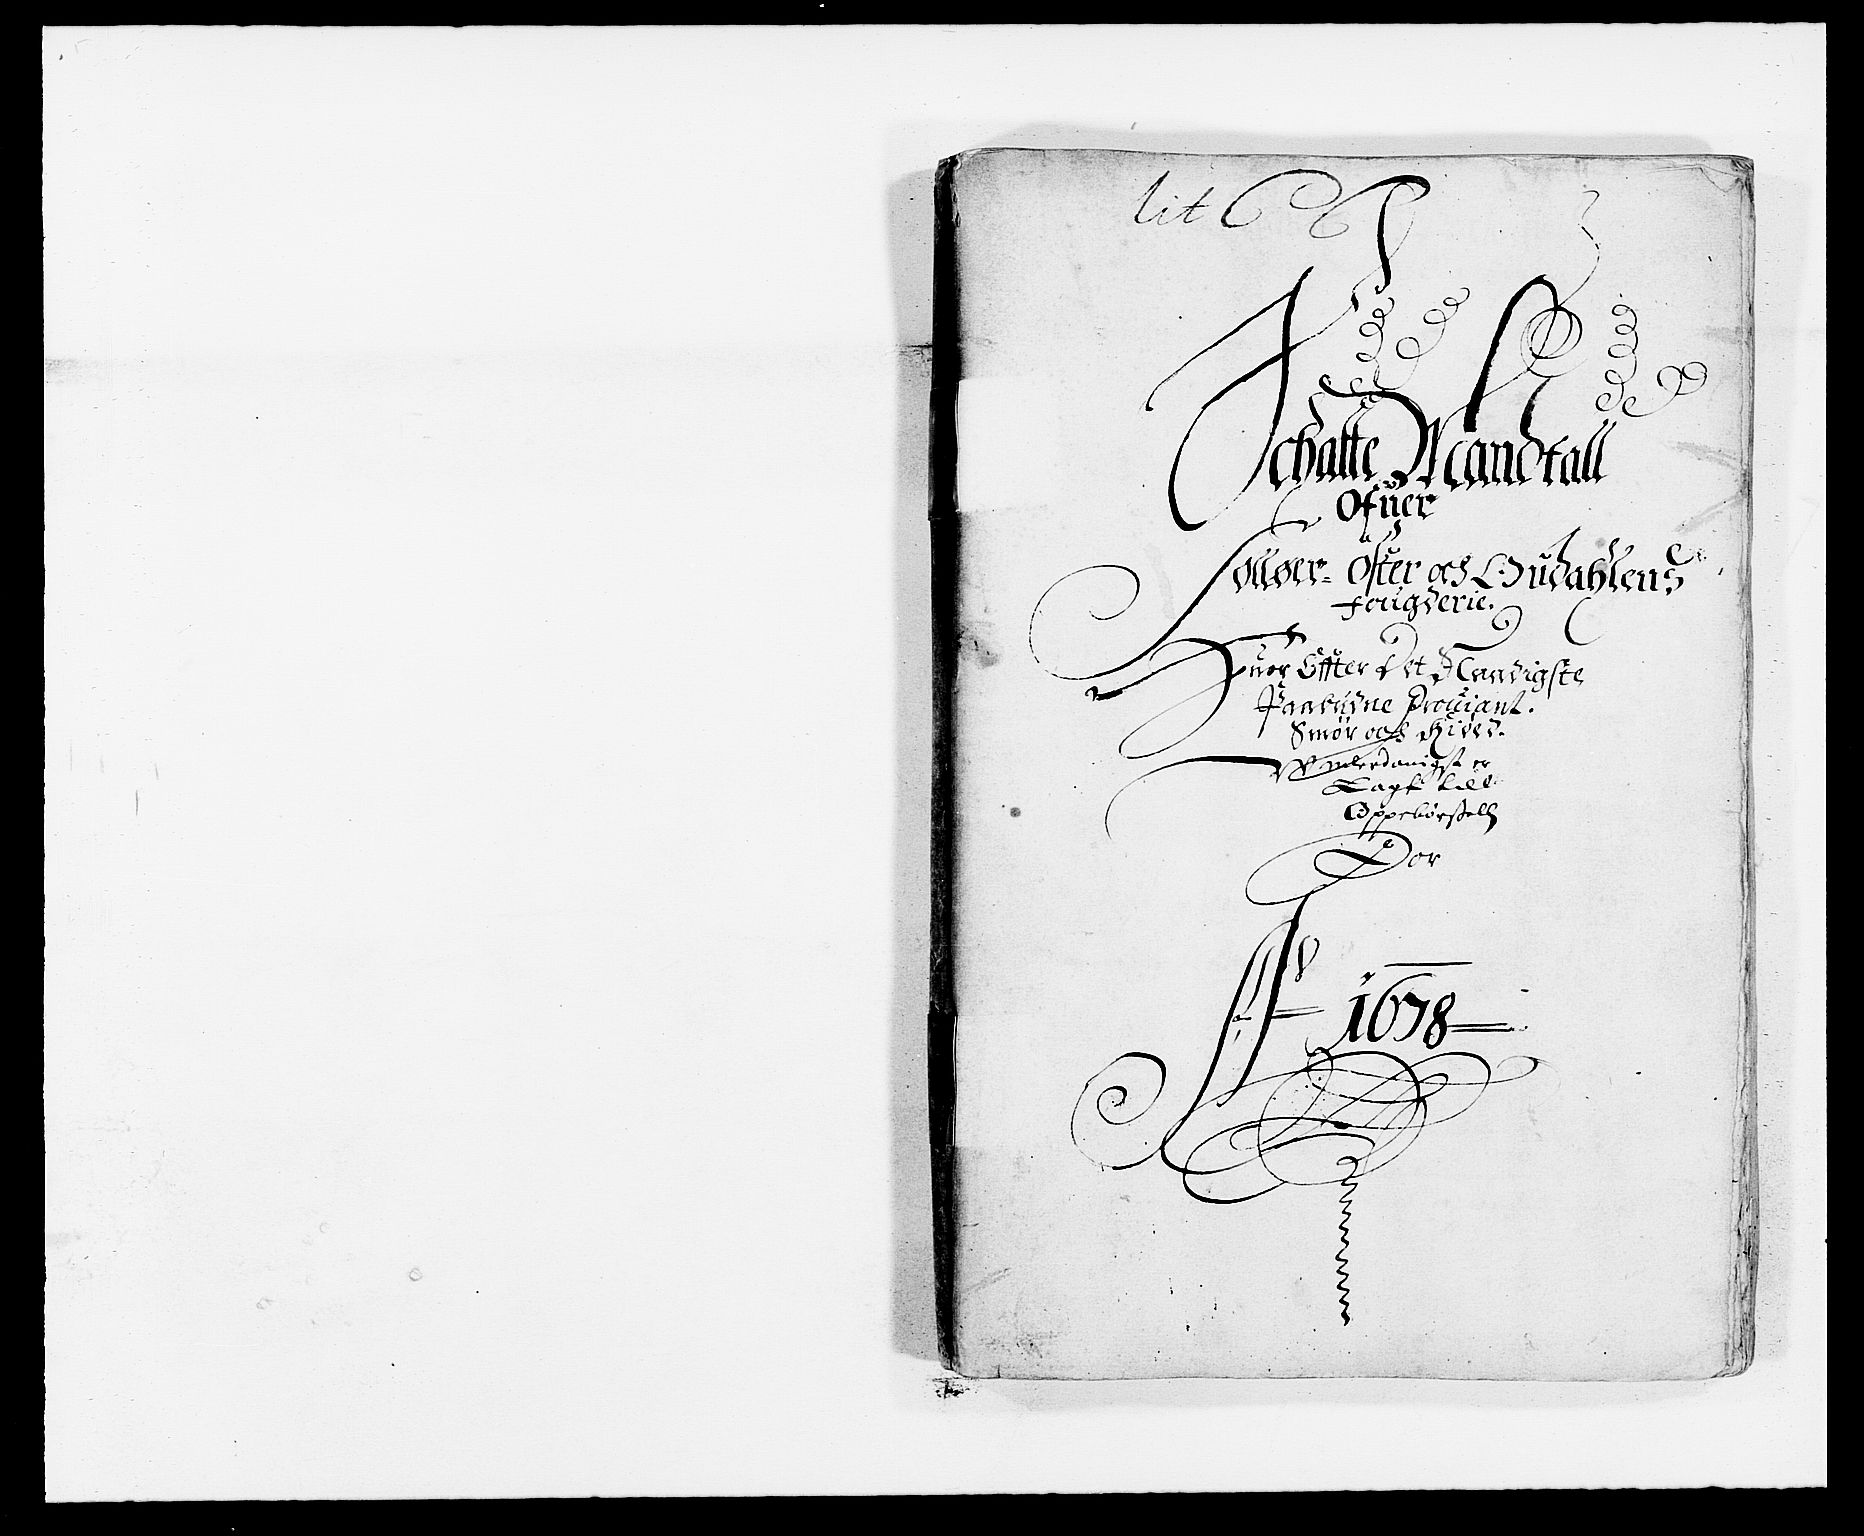 Lit C
Schatte Mandtall
Ofuer
Sølløer- Øster och Gudahlens
fougderie.
Huor Effter det Naadigste
Paabudne Prouiant.
Smør och Kiød.
Vnderdanigst er
Tagt till
Oppebørsell
For
Ao 1678